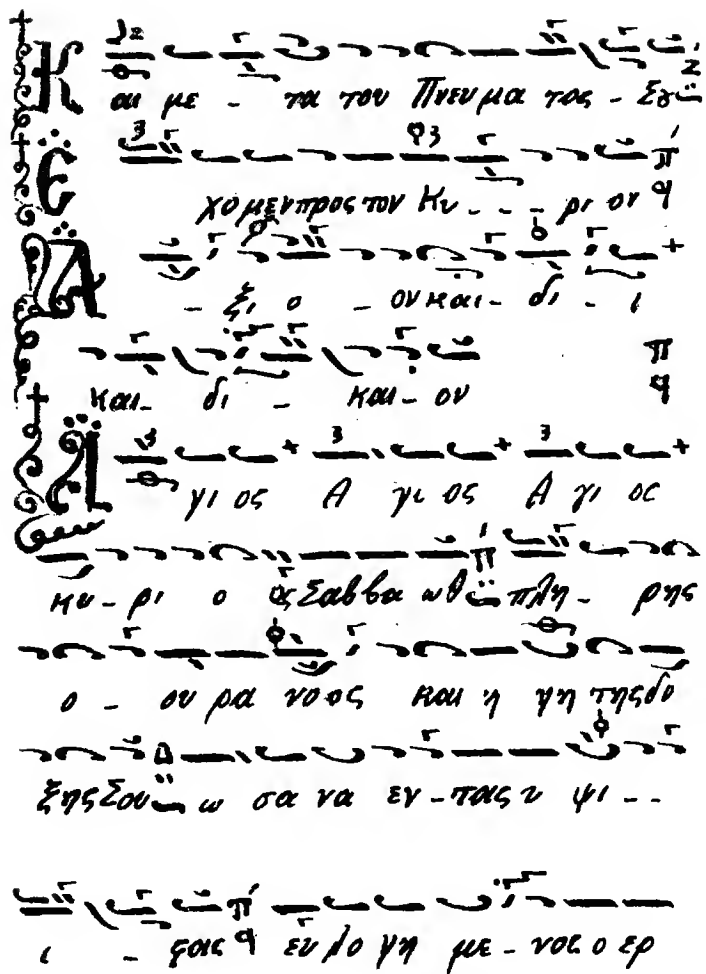 Και με - τα του Πνευμα τος - Σου
Εχομεν προς τον Κυ - - - ρι ον
Α - ξι ο - ον και - δι - ι
και - δι - και - ον
Α γι ος Α γι ος Α γι ος
κυ - ρι ο ος Σαββα ωθ πλη - ρης
ο - ου ρα νο ος και η γη της δο
ξης Σου ω σα να εν - τοις υ ψι - -
ι - στοις ευ λο γη με - νος ο ερ